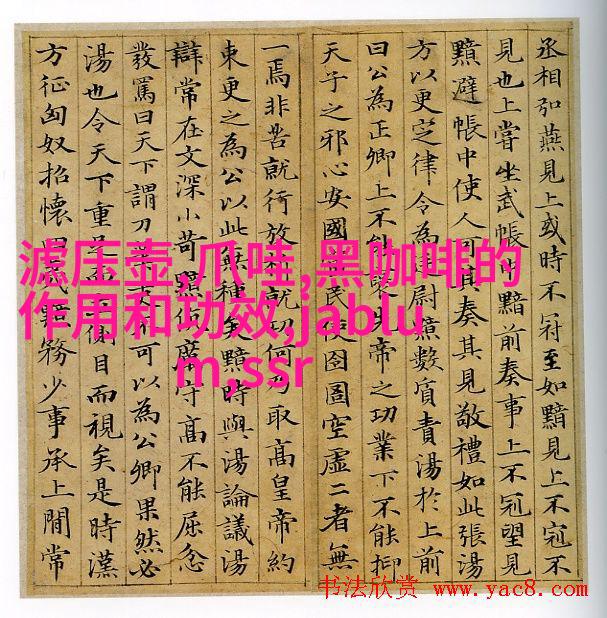 丞相弘燕見上或時不冠至如黯見上不冠不
見也上嘗坐武帳中黯前奏事上不冠望見
黯避帳中使人可其奏其見敬禮如此張湯
方以更定律令為廷尉黯數質責湯於上前
曰公為正卿上不能褒先帝之功業下不能抑
天子之邪心安國富民使囹圄空虛二者無
一焉非苦就行放析就功何乃取高皇帝約
束更之為公以此無種矣黯時與湯論議湯
辯常在文深小苛黯伉厲守高不能屈忿
發罵曰天下謂刀筆吏不可以為公卿果然必
湯也令天下重足而立側目而視矣是時漢
方征匈奴招懷四夷黯務少事承上閒常
滤压壶,爪哇,黑咖啡的
作用和功效,jablu
m,ssr
书法欣赏 www.yac8.com